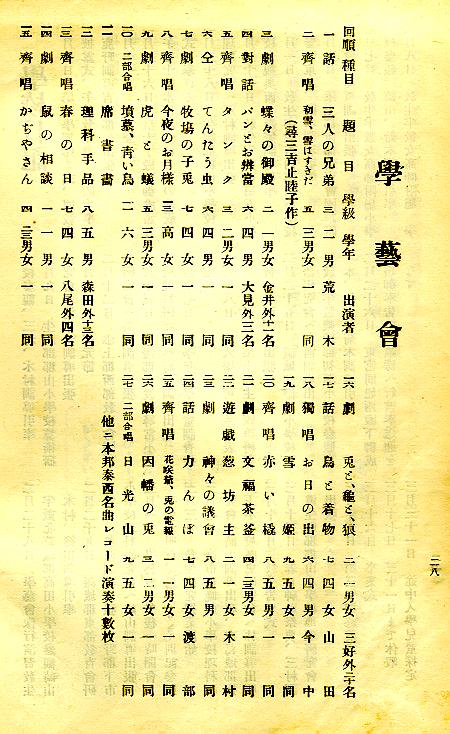 學藝會
回順 種目 題目 學級 學年 出演者
一 話 三人の兄弟 三 二男 荒木
二 齊唱 初雪、雪はすきだ 五 三男女一同
(尋三吉止睦子作)
三 劇 蝶々の御殿 二 一男女 金井外十一名
四 對話 パンとお辨當 四 四男 大見外三名
五 齊唱 タンク 三 二男女一同
六 仝 てんたう虫 六 四男一同
七 劇 牧場の子兎 七 四女一同
八 齊唱 今夜のお月樣 三 高女一同
九 劇 虎と蟻 五 三男女一同
一〇 二部合唱 墳墓、青い鳥 一 六女一同
一一 席書畫
一二 理科手品 八 五男 森田外十三名
一三 齊唱 春の日 七 四女 八尾外四名
一四 劇 鼠の相談 一 一男一同
一五 齊唱 かぢやさん 四 二三男女一同
一六 劇 兎と、龜と、狼 二 一男女 三好外二十名
一七 話 烏と着物 七 四女 山田
一八 獨唱 お日の出 六 四男 今中
一九 劇 雪姬 九 五女一同
二〇 齊唱 赤い橇 八 五男一同
二一 劇 文福茶釜 四 二三男女一同
二二 遊戲 葱坊主 二 一女 木村
二三 劇 神々の議會 八 五男一同
二四 話 力んぼ 七 四女 渡部
二五 齊唱 花咲爺、兎の電報 一 一男女一同
二六 劇 因幡の兎 三 二男女一同
二七 二部合唱 日光山 九 五女一同
他ニ本邦泰西名曲レコード演奏十數枚
二八